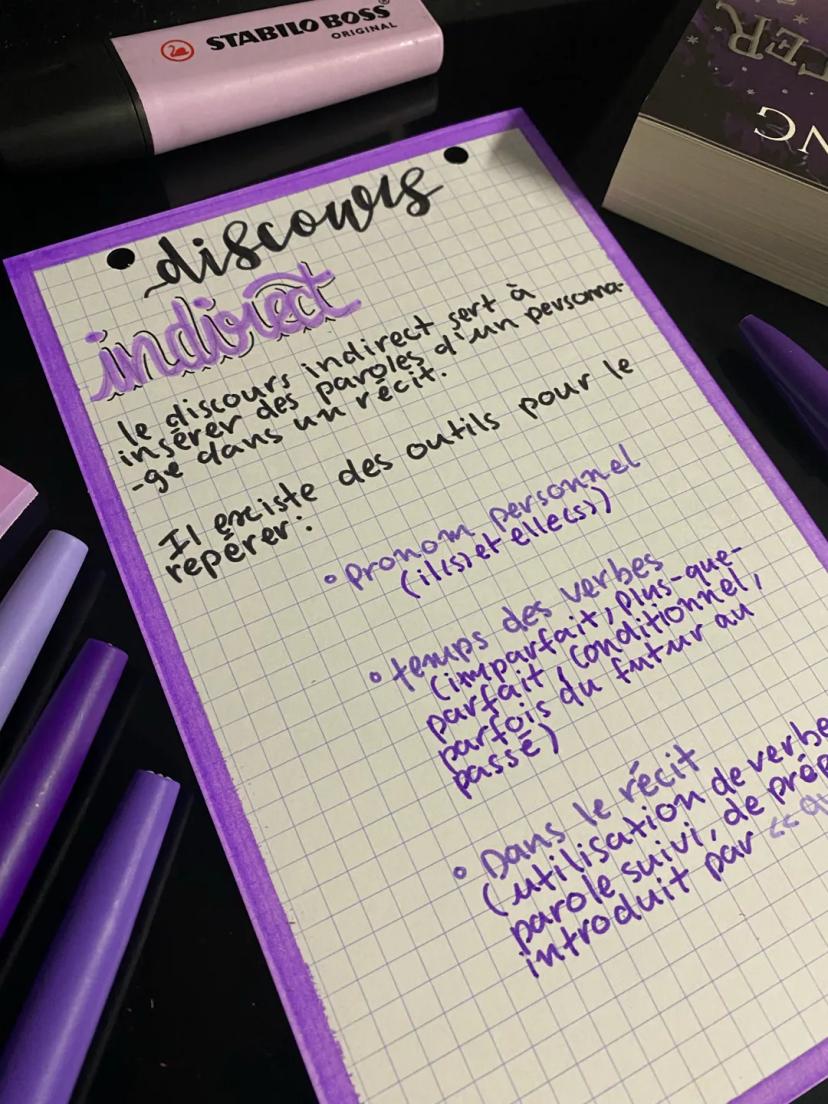 STABILO BOSS
ORIGINAL
discours
indirect
le discours indirect sert à
insérer des paroles d'un personna-
-ge dans un récit.
Il existe des outils pour le
repérer:
• pronom personnel
(il(s) et elle(s))
• temps des verbes
(imparfait, plus-que-
parfait, conditionnel,
parfois du futur au
passé)
• Dans le récit
(utilisation de verbe
parole suivi, de prép
introduit par «